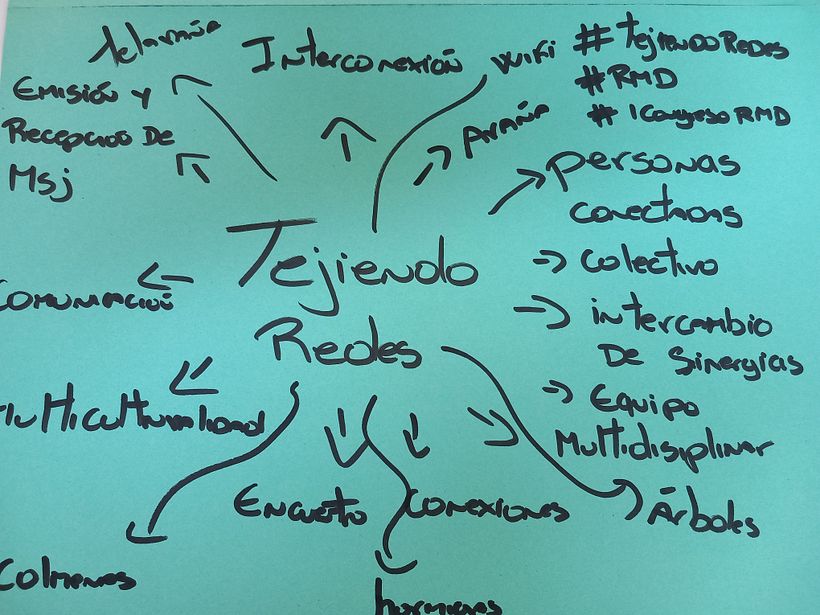 telaraña
Interconexión
wiki
#TejiendoRedes
#RMD
#1CongresoRMD
Emisión y
Recepción De
Msj
Araña
personas
conectadas
Tejiendo
Redes
colectivo
comunicación
intercambio
De sinergias
Equipo
Multidisiplinar
Multiculturalidad
Encuentro
Conexiones
Árboles
Colmenas
hormigas